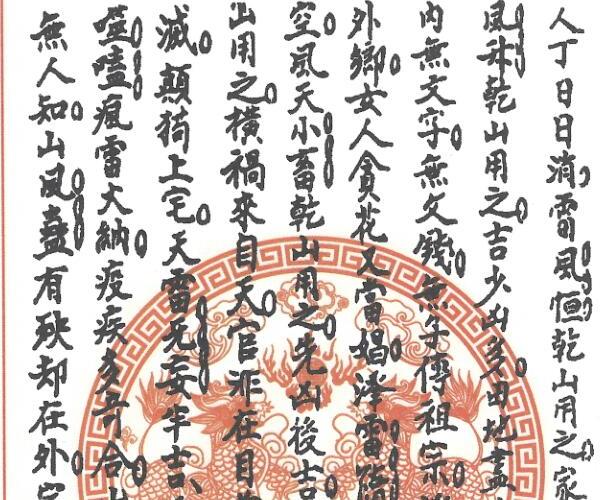 人丁日日消雷風恒乾山用之家
風升乾山用之吉少凶多田地盡
內無文字無欠錢無子傳祖宗
外鄉女人貪花又當娼澤雷隨
空風天小畜乾山用之先凶後吉
山用之橫禍來自天官非在目
滅顛狗上宅天雷无妄半吉
噬嗑瘟雷大納疫疾多奇合
無人知山風蠱有殃却在外家